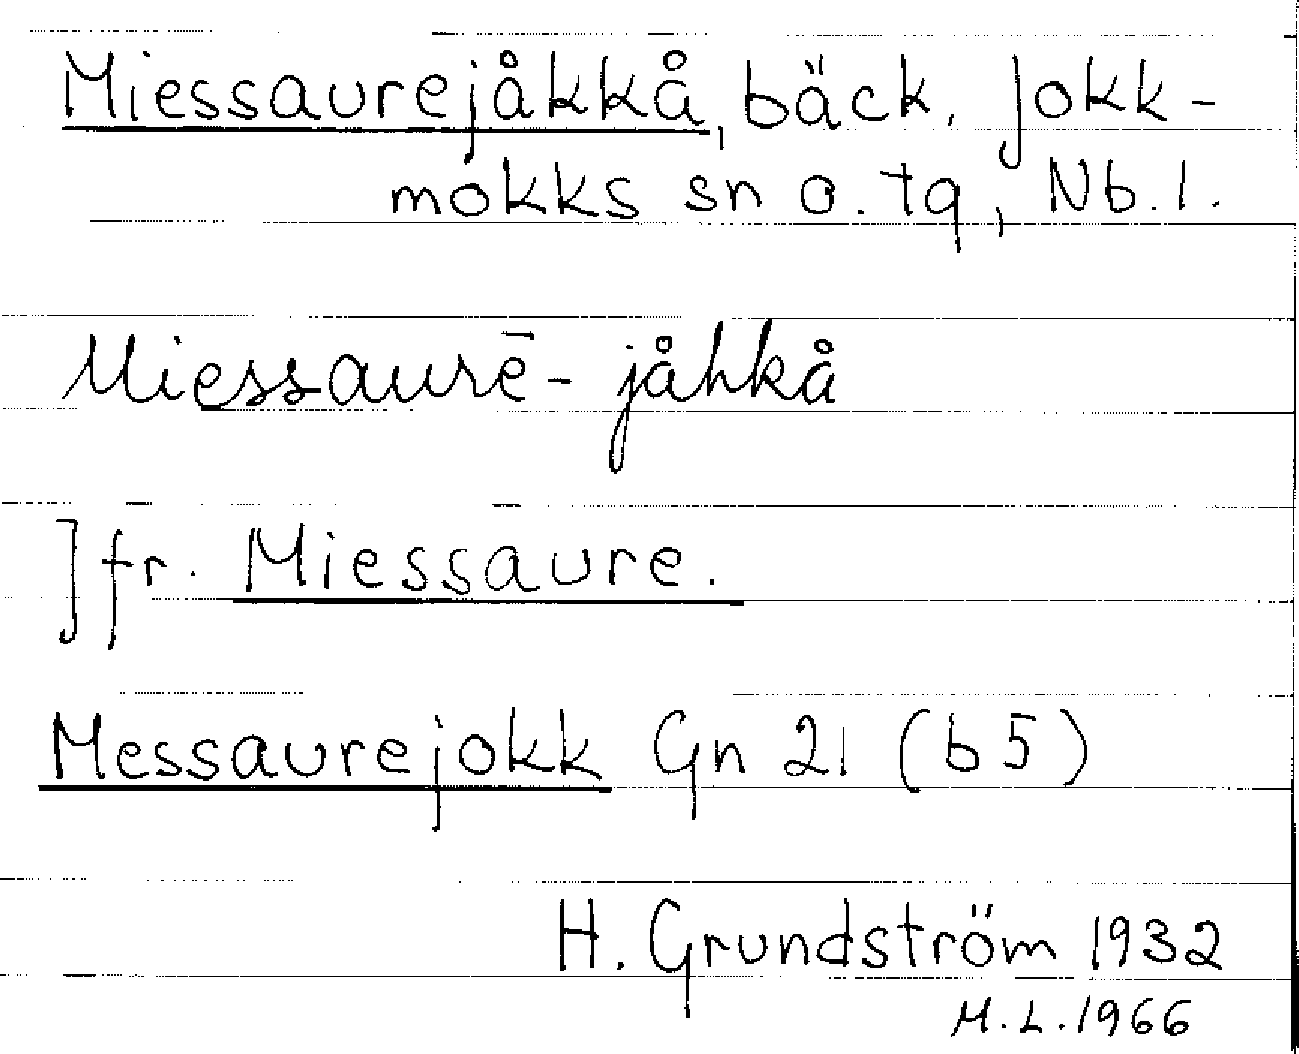 Miessaurejåkkå, bäck, Jokk-
mokks sn o. tg, Nb. l.
Miessaurē- jåhkå
Jfr. Miessaure.
Messaurejokk Gn 21 (b5)
H. Grundström 1932
M.L. 1966